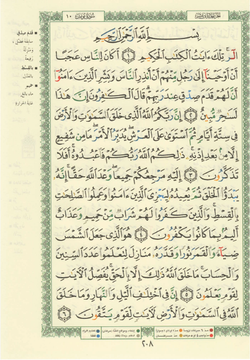 بِسْمِ اللَّهِ الرَّحْمَٰنِ الرَّحِيمِ
الٓر ۚ تِلْكَ ءَايَٰتُ الْكِتَٰبِ الْحَكِيمِ ۝١ أَكَانَ لِلنَّاسِ عَجَبًا
أَنْ أَوْحَيْنَآ إِلَىٰ رَجُلٍ مِّنْهُمْ أَنْ أَنذِرِ النَّاسَ وَبَشِّرِ الَّذِينَ ءَامَنُوٓا۟
أَنَّ لَهُمْ قَدَمَ صِدْقٍ عِندَ رَبِّهِمْ ۗ قَالَ الْكَٰفِرُونَ إِنَّ هَٰذَا
لَسَٰحِرٌ مُّبِينٌ ۝٢ إِنَّ رَبَّكُمُ اللَّهُ الَّذِى خَلَقَ السَّمَٰوَٰتِ وَالْأَرْضَ
فِى سِتَّةِ أَيَّامٍ ثُمَّ اسْتَوَىٰ عَلَى الْعَرْشِ ۖ يُدَبِّرُ الْأَمْرَ ۖ مَا مِن شَفِيعٍ
إِلَّا مِنۢ بَعْدِ إِذْنِهِۦ ۚ ذَٰلِكُمُ اللَّهُ رَبُّكُمْ فَاعْبُدُوهُ ۚ أَفَلَا
تَذَكَّرُونَ ۝٣ إِلَيْهِ مَرْجِعُكُمْ جَمِيعًا ۖ وَعْدَ اللَّهِ حَقًّا ۚ إِنَّهُۥ
يَبْدَؤُا۟ الْخَلْقَ ثُمَّ يُعِيدُهُۥ لِيَجْزِىَ الَّذِينَ ءَامَنُوا۟ وَعَمِلُوا۟ الصَّٰلِحَٰتِ
بِالْقِسْطِ ۚ وَالَّذِينَ كَفَرُوا۟ لَهُمْ شَرَابٌ مِّنْ حَمِيمٍ وَعَذَابٌ
أَلِيمٌۢ بِمَا كَانُوا۟ يَكْفُرُونَ ۝٤ هُوَ الَّذِى جَعَلَ الشَّمْسَ
ضِيَآءً وَالْقَمَرَ نُورًا وَقَدَّرَهُۥ مَنَازِلَ لِتَعْلَمُوا۟ عَدَدَ السِّنِينَ
وَالْحِسَابَ ۚ مَا خَلَقَ اللَّهُ ذَٰلِكَ إِلَّا بِالْحَقِّ ۚ يُفَصِّلُ الْءَايَٰتِ
لِقَوْمٍ يَعْلَمُونَ ۝٥ إِنَّ فِى اخْتِلَٰفِ الَّيْلِ وَالنَّهَارِ وَمَا خَلَقَ
اللَّهُ فِى السَّمَٰوَٰتِ وَالْأَرْضِ لَءَايَٰتٍ لِّقَوْمٍ يَتَّقُونَ ۝٦
٢٠٨